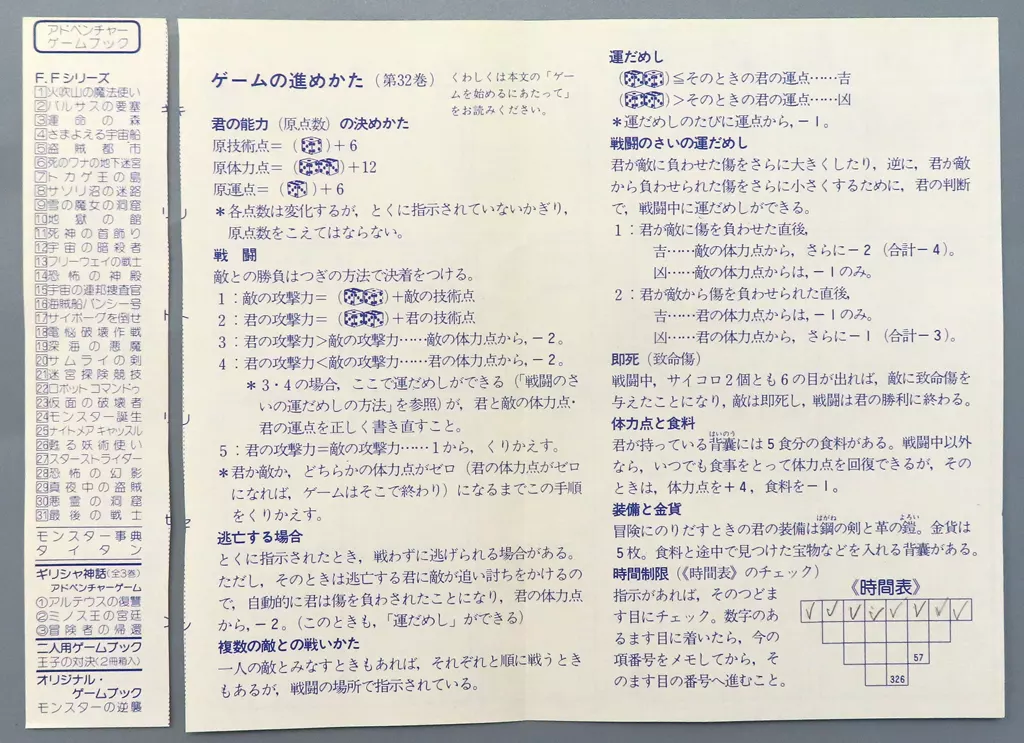 アドベンチャー
ゲームブック
F.Fシリーズ
1火吹山の魔法使い
2バルサスの要塞
3運命の森
4さまよえる宇宙船
5盗賊都市
6死のワナの地下迷宮
7トカゲ王の島
8サソリ沼の迷路
9雪の魔女の洞窟
10地獄の館
11死神の首飾り
12宇宙の暗殺者
13フリーウェイの戦士
14恐怖の神殿
15宇宙の連邦捜査官
16海賊船バンシー号
17サイボーグを倒せ
18電脳破壊作戦
19深海の悪魔
20サムライの剣
21迷宮探険競技
22ロボット コマンドゥ
23仮面の破壊者
24モンスター誕生
25ナイトメア キャッスル
26甦る妖術使い
27スターストライダー
28恐怖の幻影
29真夜中の盗賊
30悪霊の洞窟
31最後の戦士
モンスター事典
タイタン
ギリシャ神話(全3巻)
アドベンチャーゲーム
①アルテウスの復讐
②ミノス王の宮廷
③冒険者の帰還
二人用ゲームブック
王子の対決(2冊箱入)
オリジナル・
ゲームブック
モンスターの逆襲
ゲームの進めかた(第32巻)
くわしくは本文の「ゲー
ムを始めるにあたって」
をお読みください。
君の能力(原点数)の決めかた
原技術点=()+6
原体力点=()+12
原運点=()+6
*各点数は変化するが,とくに指示されていないかぎり,
原点数をこえてはならない。
戦 闘
敵との勝負はつぎの方法で決着をつける。
1:敵の攻撃力=()+敵の技術点
2:君の攻撃力=()+君の技術点
3:君の攻撃力>敵の攻撃力……敵の体力点から,-2。
4:君の攻撃力<敵の攻撃力……君の体力点から,-2。
*3・4の場合,ここで運だめしができる(「戦闘のさ
いの運だめしの方法」を参照)が,君と敵の体力点・
君の運点を正しく書き直すこと。
5:君の攻撃力=敵の攻撃力……1から,くりかえす。
*君か敵か,どちらかの体力点がゼロ(君の体力点がゼロ
になれば,ゲームはそこで終わり)になるまでこの手順
をくりかえす。
逃亡する場合
とくに指示されたとき,戦わずに逃げられる場合がある。
ただし,そのときは逃亡する君に敵が追い討ちをかけるの
で,自動的に君は傷を負わされたことになり,君の体力点
から,-2。(このときも,「運だめし」ができる)
複数の敵との戦いかた
一人の敵とみなすときもあれば,それぞれと順に戦うとき
もあるが,戦闘の場所で指示されている。
運だめし
()≦そのときの君の運点……吉
()>そのときの君の運点……凶
*運だめしのたびに運点から,-1。
戦闘のさいの運だめし
君が敵に負わせた傷をさらに大きくしたり,逆に,君が敵
から負わせられた傷をさらに小さくするために,君の判断
で,戦闘中に運だめしができる。
1:君が敵に傷を負わせた直後,
吉……敵の体力点から,さらに-2(合計-4)。
凶……敵の体力点からは,-1のみ。
2:君が敵から傷を負わせられた直後,
吉……君の体力点からは,-1のみ。
凶……君の体力点から,さらに-1(合計-3)。
即死(致命傷)
戦闘中,サイコロ2個とも6の目が出れば,敵に致命傷を
与えたことになり,敵は即死し,戦闘は君の勝利に終わる。
体力点と食料
君が持っている背囊には5食分の食料がある。戦闘中以外
はいのう
なら,いつでも食事をとって体力点を回復できるが,その
ときは,体力点を+4,食料を-1。
装備と金貨
冒険にのりだすときの君の装備は鋼の剣と革の鎧。金貨は
はがね
よろい
5枚。食料と途中で見つけた宝物などを入れる背囊がある。
時間制限(《時間表》のチェック)
指示があれば,そのつどま
す目にチェック。数字のあ
るます目に着いたら,今の
項番号をメモしてから,そ
のます目の番号へ進むこと。
《時間表》
✓ ✓ ✓ ✓ ✓ ✓ ✓ ✓
57
326